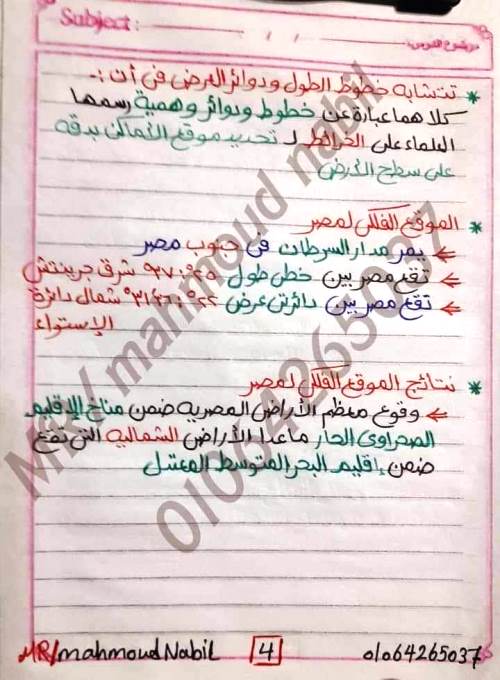 Subject:
موضوع الدرس:
* تتشابه خطوط الطول ودوائر العرض فى أن :-
كلاهما عبارة عن خطوط ودوائر وهمية رسمها
العلماء على الخرائط لـ تحديد موقع الأماكن بدقة
على سطح الأرض
* الموقع الفلكى لمصر
← يمر مدار السرطان فى جنوب مصر
← تقع مصر بين خطى طول ٢٥° : ٣٧° شرق جرينتش
← تقع مصر بين دائرتى عرض ٢٢° : ٣١/٣٦° شمال دائرة
الإستواء
* نتائج الموقع الفلكى لمصر
← وقوع معظم الأراضى المصرية ضمن مناخ الإقليم
الصحراوى الحار ماعدا الأراضى الشمالية التى تقع
ضمن إقليم البحر المتوسط المعتدل
MR/ mahmoud nabil
01064265037
MR/mahmoud Nabil
4
01064265037